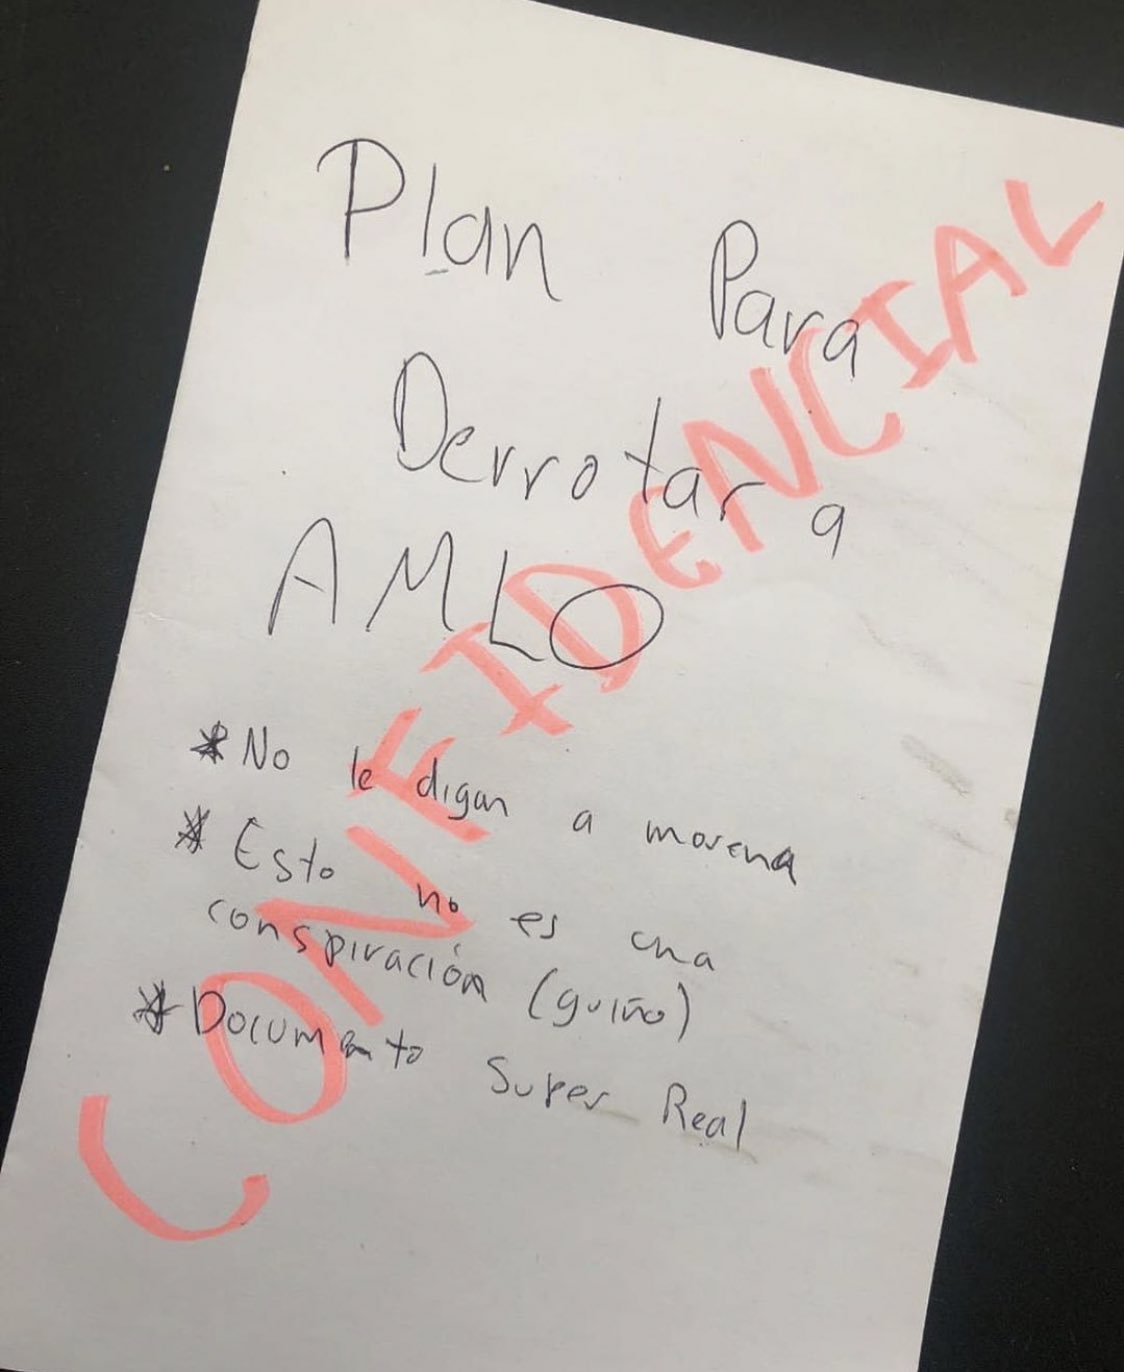 Plan Para
Derrotar a
AMLO
* No le digan a morena
* Esto no es una
conspiración (guiño)
* Documento Super Real
CONFIDENCIAL